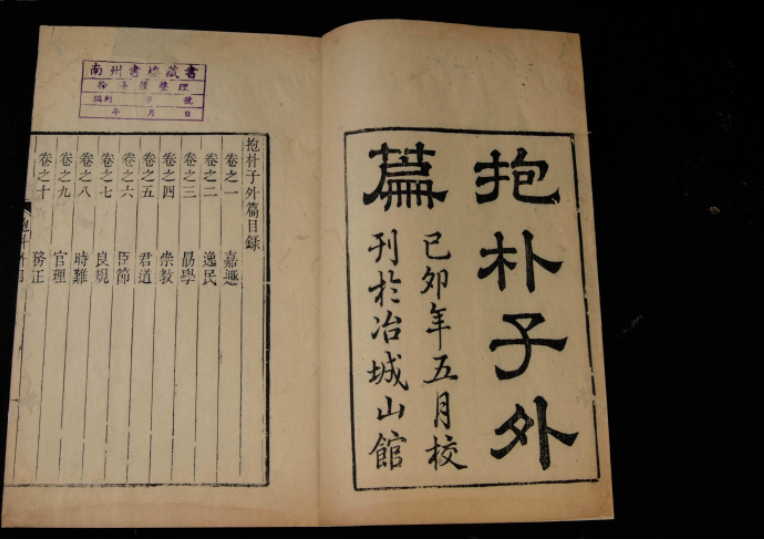 抱朴子外
篇
己卯年五月校
刊於冶城山館
南州書樓藏書
徐湯殷整理
編列 字 號
年 月 日
抱朴子外篇目錄
卷之一 嘉遯
卷之二 逸民
卷之三 勗學
卷之四 崇教
卷之五 君道
卷之六 臣節
卷之七 良規
卷之八 時難
卷之九 官理
卷之十 務正